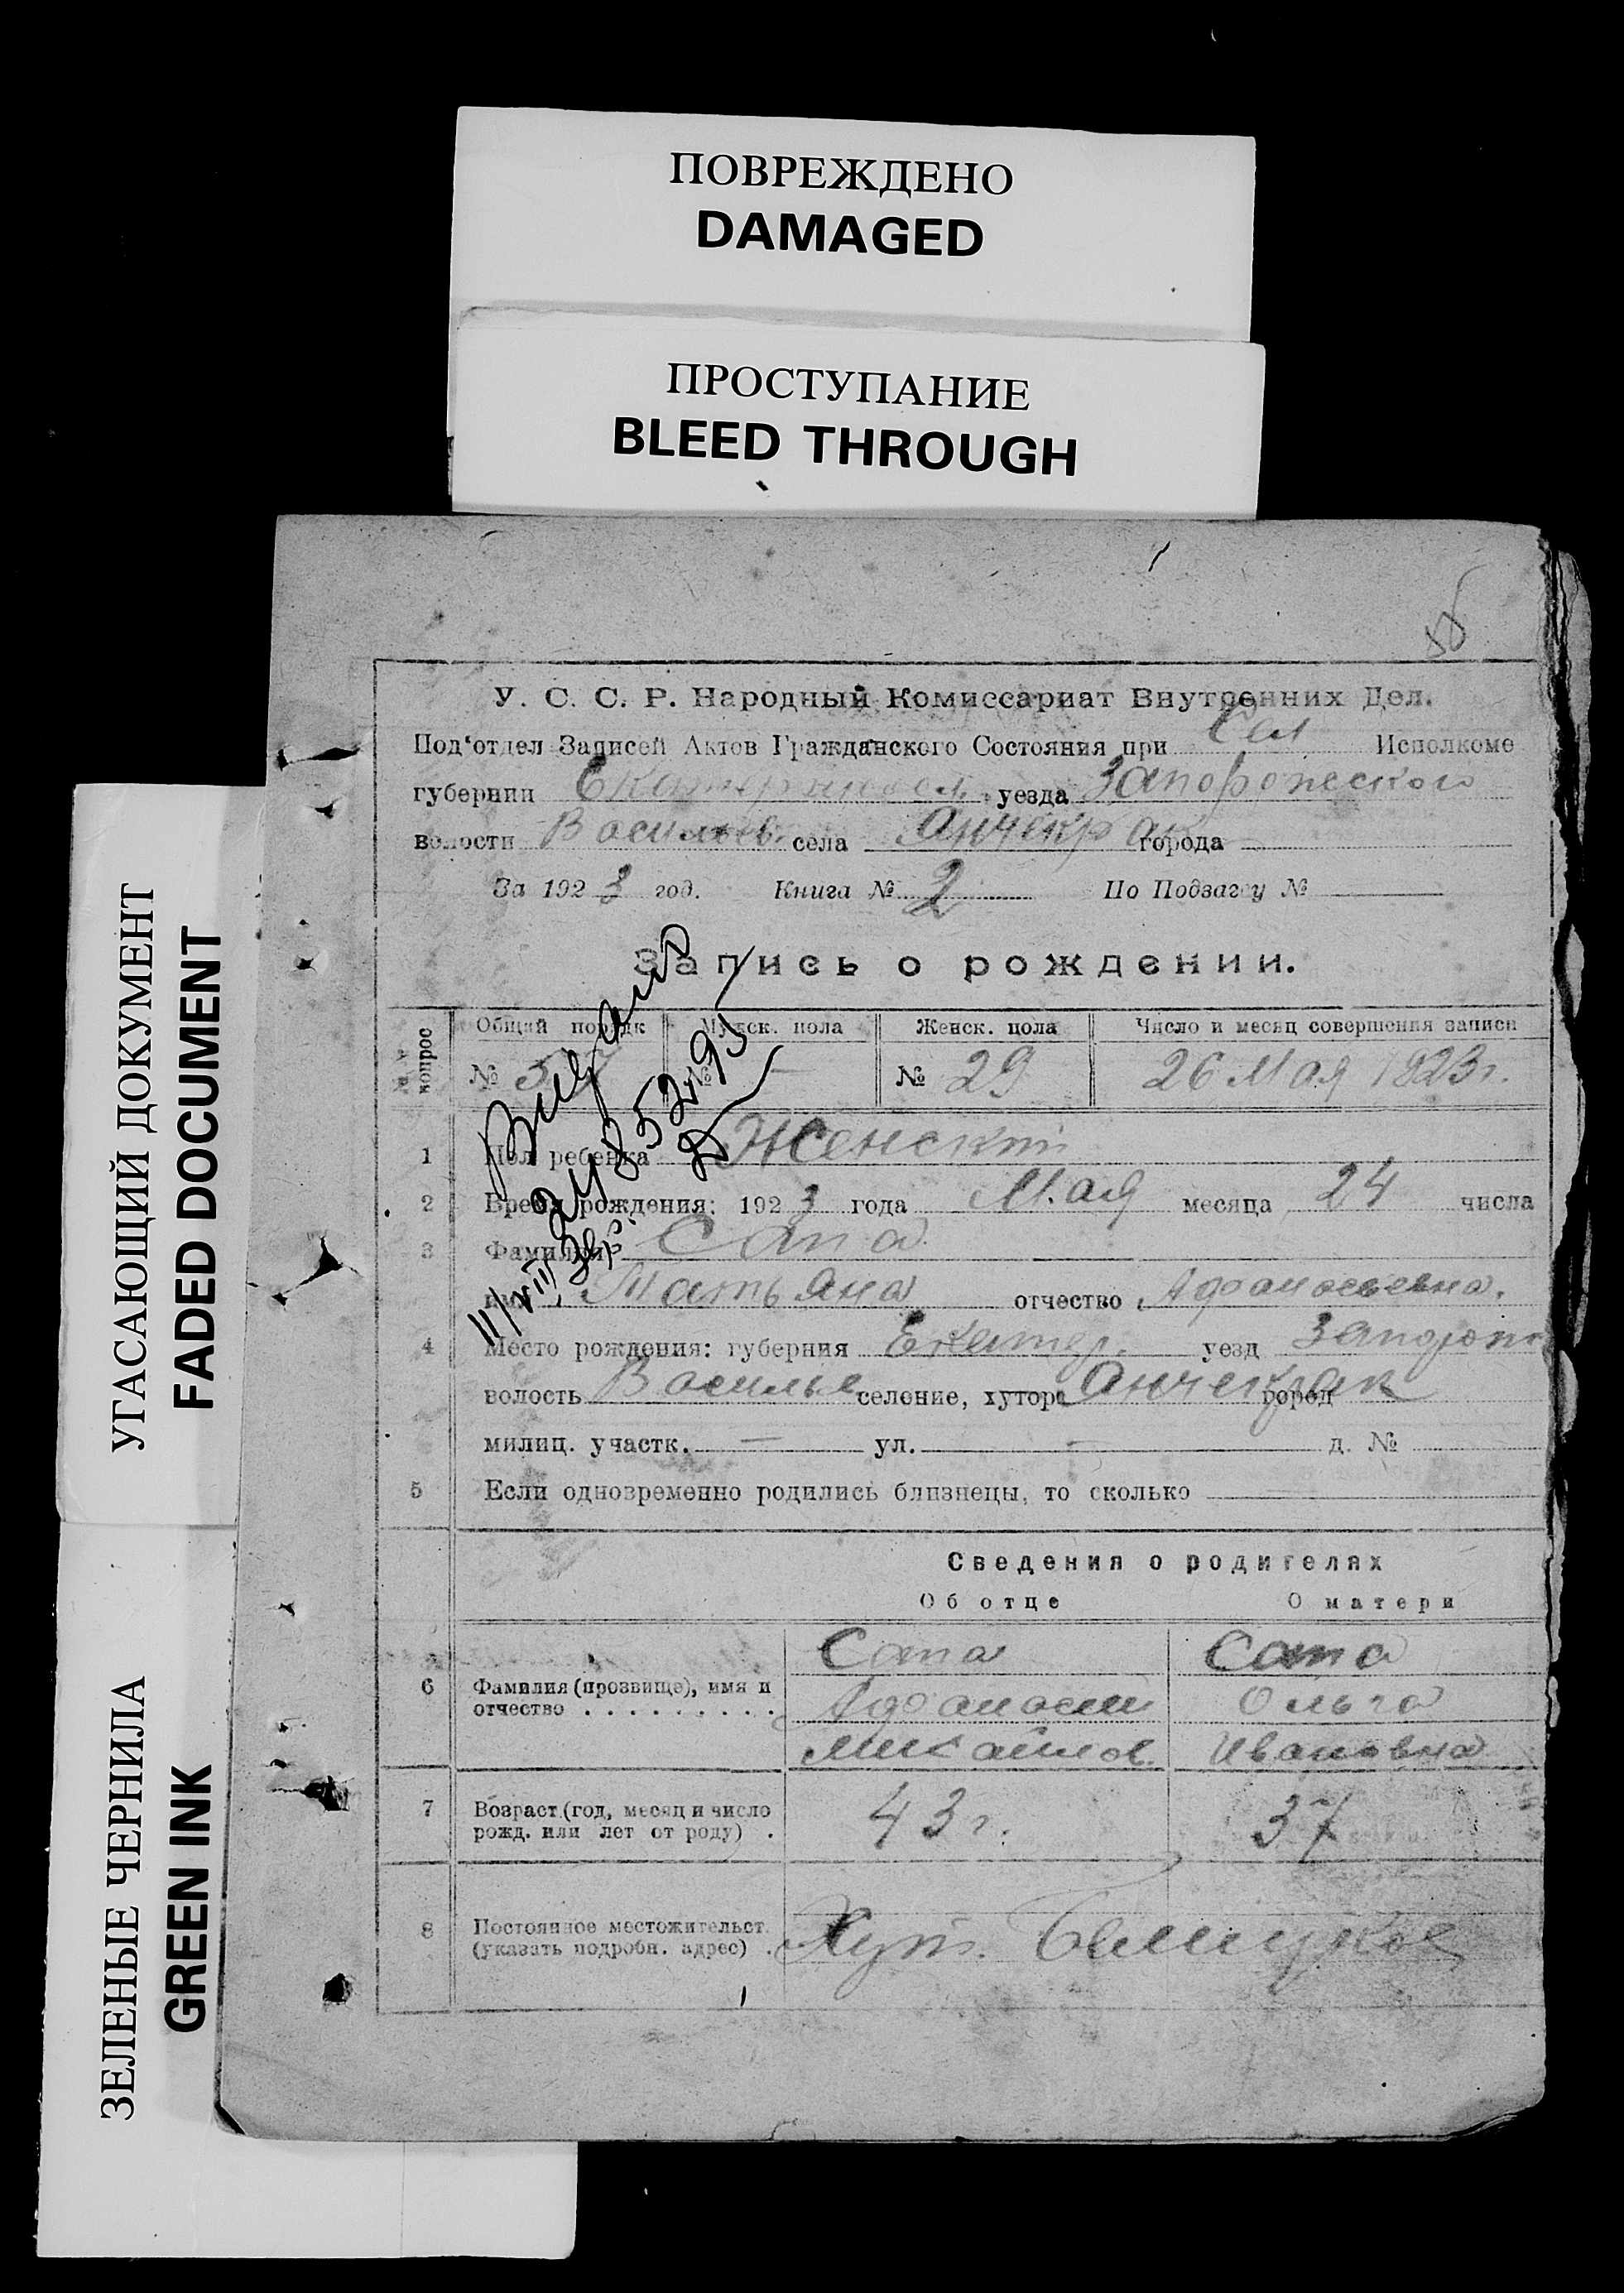 ПОВРЕЖДЕНО
DAMAGED
ПРОСТУПАНИЕ
BLEED THROUGH
УГАСАЮЩИЙ ДОКУМЕНТ
FADED DOCUMENT
ЗЕЛЕНЫЕ ЧЕРНИЛА
GREEN INK
У. С. С. Р. Народный Комиссариат Внутренних Дел.
Под'отдел Записей Актов Гражданского Состояния при Сел Исполкоме
губернии уезда Запорожского
волости Васильев. села Анчекрак города
За 1923 год. Книга № 2 По Подзагсу №
Запись о рождении.
№№ вопрос Общий порядк Мужск. пола Женск. пола Число и месяц совершения записи
№ 57 № — № 29 26 Мая 1923 г.
1 Пол ребенка Женский
2 Время рождения: 1923 года Мая месяца 24 числа
3 Фамилия Сапа
имя Татьяна отчество Афанасьевна.
4 Место рождения: губерния Екатер. уезд Запорож
волость Василье селение, хутор Анчекрак город
милиц. участк. — ул. — д. №
5 Если одновременно родились близнецы, то сколько
Сведения о родителях
Об отце О матери
Сапа Сапа
6 Фамилия (прозвище), имя и отчество . . . . . . . . . Афанасий Ольга
Михайлов. Ивановна
7 Возраст (год, месяц и число рожд. или лет от роду) . 43 г. 37
8 Постоянное местожительст. (указать подробн. адрес) . Хут.